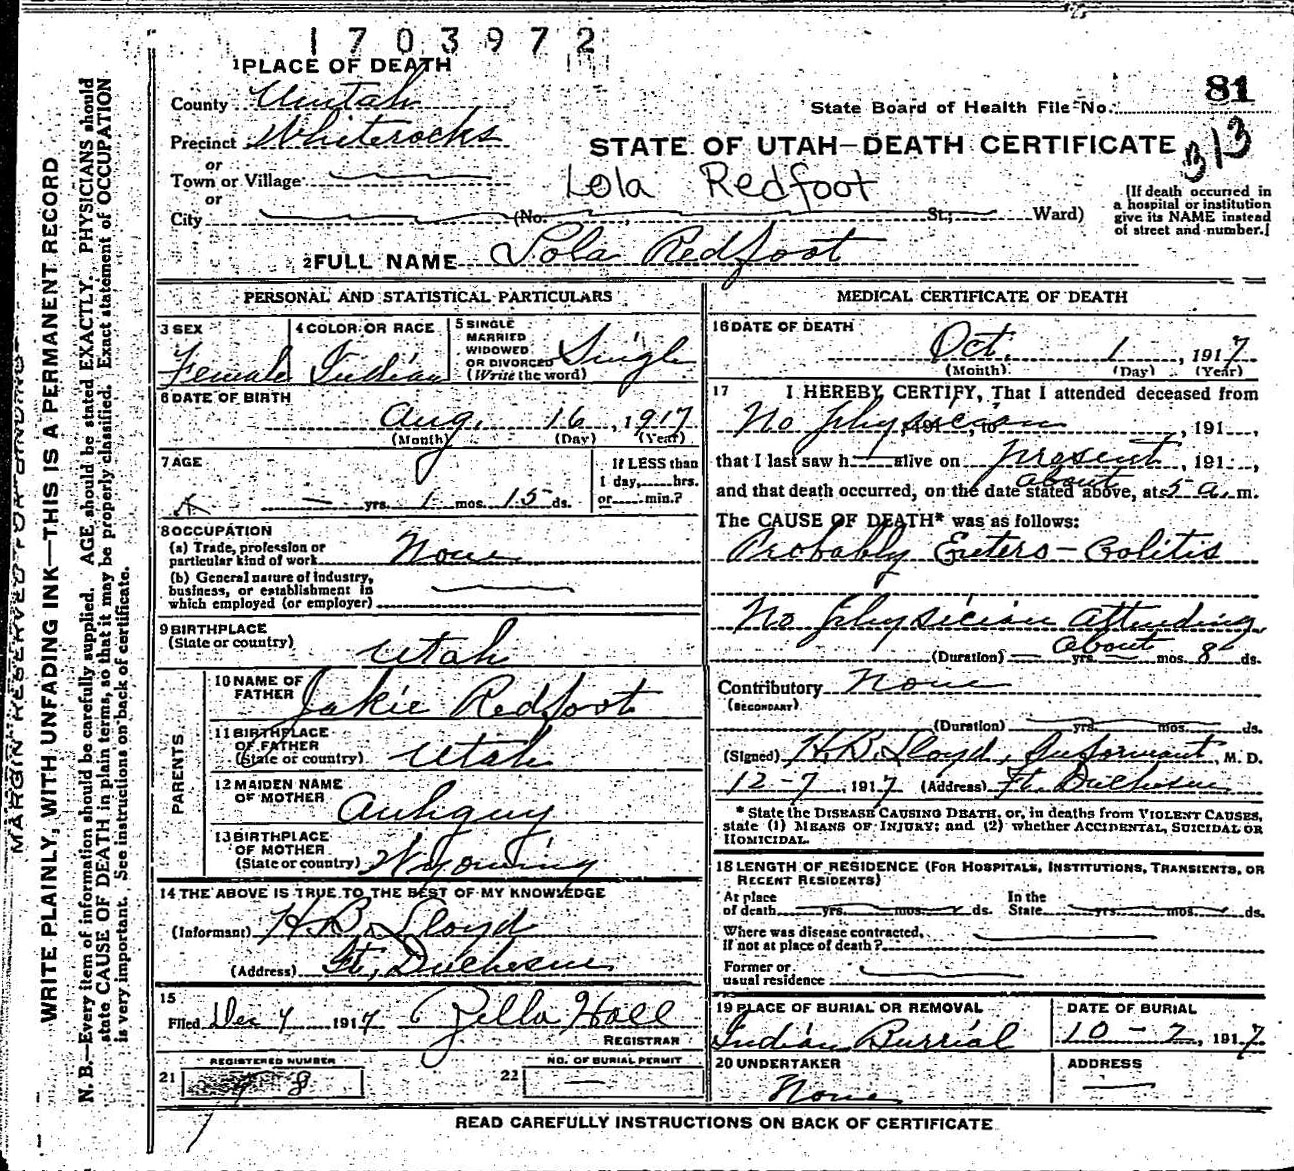 1703972
1 PLACE OF DEATH
County Uintah
Precinct Whiterocks
or
Town or Village
or
City (No. St.; Ward)
State Board of Health File No. 81
STATE OF UTAH—DEATH CERTIFICATE
313
Lola Redfoot
(If death occurred in
a hospital or institution
give its NAME instead
of street and number.)
2 FULL NAME Lola Redfoot
PERSONAL AND STATISTICAL PARTICULARS
3 SEX Female
4 COLOR OR RACE Indian
5 SINGLE
MARRIED
WIDOWED
OR DIVORCED
(Write the word) Single
6 DATE OF BIRTH
Aug. 16, 1917
(Month) (Day) (Year)
7 AGE
— yrs. 1 mos. 15 ds.
If LESS than
1 day, hrs.
or min.?
8 OCCUPATION
(a) Trade, profession or
particular kind of work None
(b) General nature of industry,
business, or establishment in
which employed (or employer)
9 BIRTHPLACE
(State or country) Utah
PARENTS
10 NAME OF
FATHER Jakie Redfoot
11 BIRTHPLACE
OF FATHER
(State or country) Utah
12 MAIDEN NAME
OF MOTHER Auhguy
13 BIRTHPLACE
OF MOTHER
(State or country) Wyoming
14 THE ABOVE IS TRUE TO THE BEST OF MY KNOWLEDGE
(Informant) H.B. Lloyd
(Address) Ft. Duchesne
15
Filed Dec 7 1917 Zella Hall
REGISTRAR
REGISTERED NUMBER
21 78
NO. OF BURIAL PERMIT
22 —
MEDICAL CERTIFICATE OF DEATH
16 DATE OF DEATH
Oct. 1, 1917
(Month) (Day) (Year)
17 I HEREBY CERTIFY, That I attended deceased from
No physician, 191 , to , 191 ,
that I last saw h alive on present, 191 ,
about
and that death occurred, on the date stated above, at 5 a. m.
The CAUSE OF DEATH* was as follows:
Probably Entero-Colitis
No physician attending
about
(Duration) — yrs. — mos. 8 ds.
Contributory None
(SECONDARY)
(Duration) yrs. mos. ds.
(Signed) H.B. Lloyd, Informant, M. D.
12-7, 1917 (Address) Ft. Duchesne
* State the DISEASE CAUSING DEATH, or, in deaths from VIOLENT CAUSES,
state (1) MEANS OF INJURY; and (2) whether ACCIDENTAL, SUICIDAL OR
HOMICIDAL.
18 LENGTH OF RESIDENCE (FOR HOSPITALS, INSTITUTIONS, TRANSIENTS, OR
RECENT RESIDENTS)
At place
of death yrs. mos. ds.
In the
State yrs. mos. ds.
Where was disease contracted,
if not at place of death?
Former or
usual residence
19 PLACE OF BURIAL OR REMOVAL
Indian Burrial
DATE OF BURIAL
10-2, 1917
20 UNDERTAKER
None
ADDRESS
—
READ CAREFULLY INSTRUCTIONS ON BACK OF CERTIFICATE
MARGIN RESERVED FOR BINDING
WRITE PLAINLY, WITH UNFADING INK—THIS IS A PERMANENT RECORD
N. B.—Every item of information should be carefully supplied. AGE should be stated EXACTLY. PHYSICIANS should
state CAUSE OF DEATH in plain terms, so that it may be properly classified. Exact statement of OCCUPATION
is very important. See instructions on back of certificate.